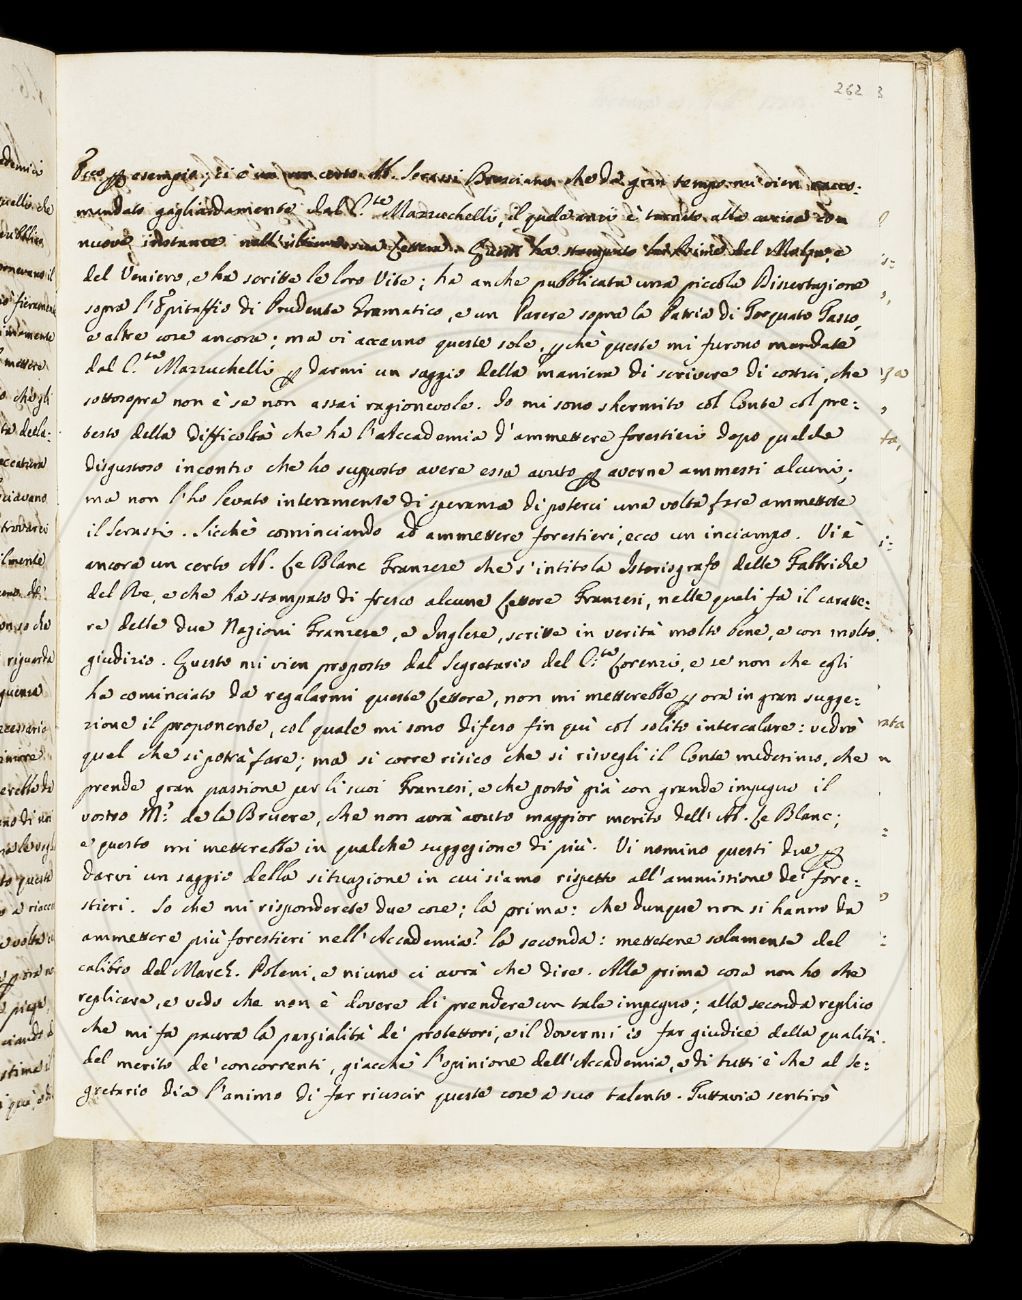 262
Ecco p esempio, vi è un certo Ab. Serassi Bresciano che da gran tempo mi vien racco=
mandato gagliardamente dal C.te Mazzuchelli, il quale anzi è tornato alla carica con
nuove instanze nell'ultima sua Lettera. Questi ha stampato le Rime del Molza, e
del Veniero, e ha scritte le loro Vite; ha anche pubblicata una piccola Dissertazione
sopra l'Epitaffio di Prudente Gramatico, e un Parere sopra la Patria di Torquato Tasso,
e altre cose ancora; ma vi accenno queste sole, p chè queste mi furono mandate
dal C.te Mazzuchelli p darmi un saggio della maniera di scrivere di costui, che
sottosopra non è se non assai ragionevole. Io mi sono schermito col Conte col pre=
testo della difficoltà che ha l'Accademia d'ammettere forestieri dopo qualche
disgustoso incontro che ho supposto avere essa avuto p averne ammessi alcuni;
ma non l'ho levato interamente di speranza di poterci una volta fare ammettere
il Serassi. Sicchè cominciando ad ammettere forestieri, ecco un inciampo. Vi è
ancora un certo Ab. Le Blanc Franzese che s'intitola Istoriografo delle Fabbriche
del Re, e che ha stampato di fresco alcune Lettere Franzesi, nelle quali fa il caratte=
re delle due Nazioni Franzese, e Inglese, scritte in verità molto bene, e con molto
giudizio. Questo mi vien proposto dal Segretario del C.te Lorenzi, e se non che egli
ha cominciato da regalarmi queste Lettere, non mi metterebbe p ora in gran sugge=
zione il proponente, col quale mi sono difeso fin quì col solito intercalare: vedrò
quel che si potrà fare; ma si corre risico che si risvegli il Conte medesimo, che
prende gran passione per li suoi Franzesi, e che portò già con grande impegno il
vostro M.r de la Bruere, che non avrà avuto maggior merito dell'Ab. Le Blanc;
e questo mi metterebbe in qualche suggezione di più. Vi nomino questi due p
darvi un saggio della situazione in cui siamo rispetto all'ammissione de' fore=
stieri. So che mi risponderete due cose; la prima: che dunque non si hanno da
ammettere più forestieri nell'Accademia? la seconda: mettetene solamente del
calibro del March. Poleni, e niuno ci avrà che dire. Alla prima cosa non ho che
replicare, e vedo che non è dovere di prendere un tale impegno; alla seconda replico
che mi fa paura la parzialità de' protettori, e il dovermi io far giudice della qualità
del merito de' concorrenti, giacchè l'opinione dell'Accademia, e di tutti è che al se=
gretario dia l'animo di far riuscir queste cose a suo talento. Tuttavia sentirò